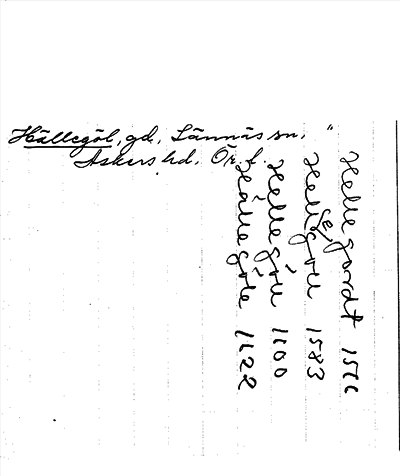 Hällegöl, gd., Lännäs sn.,
Askers hd. Ör. l.
Helle gordt 1566
Helle göll 1583
Helle göll 1600
Hälle göle 1622